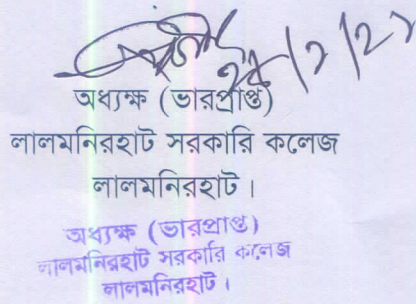 অধ্যক্ষ (ভারপ্রাপ্ত)
লালমনিরহাট সরকারি কলেজ
লালমনিরহাট।
অধ্যক্ষ (ভারপ্রাপ্ত)
লালমনিরহাট সরকারি কলেজ
লালমনিরহাট।